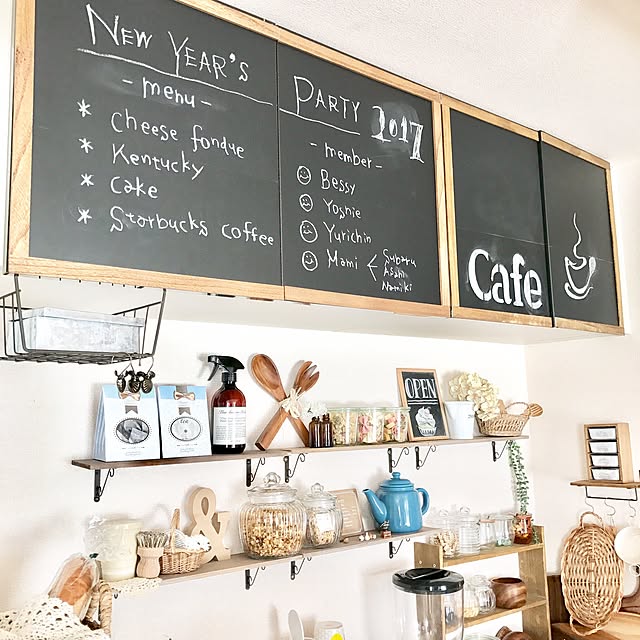 NEW YEAR'S
- menu -
* cheese fondue
* Kentucky
* cake
* Starbucks coffee
PARTY 2017
- member -
Bessy
Yoshie
Yurichin
Mami < Subaru
Asahi
Namiki
Cafe
OPEN
&